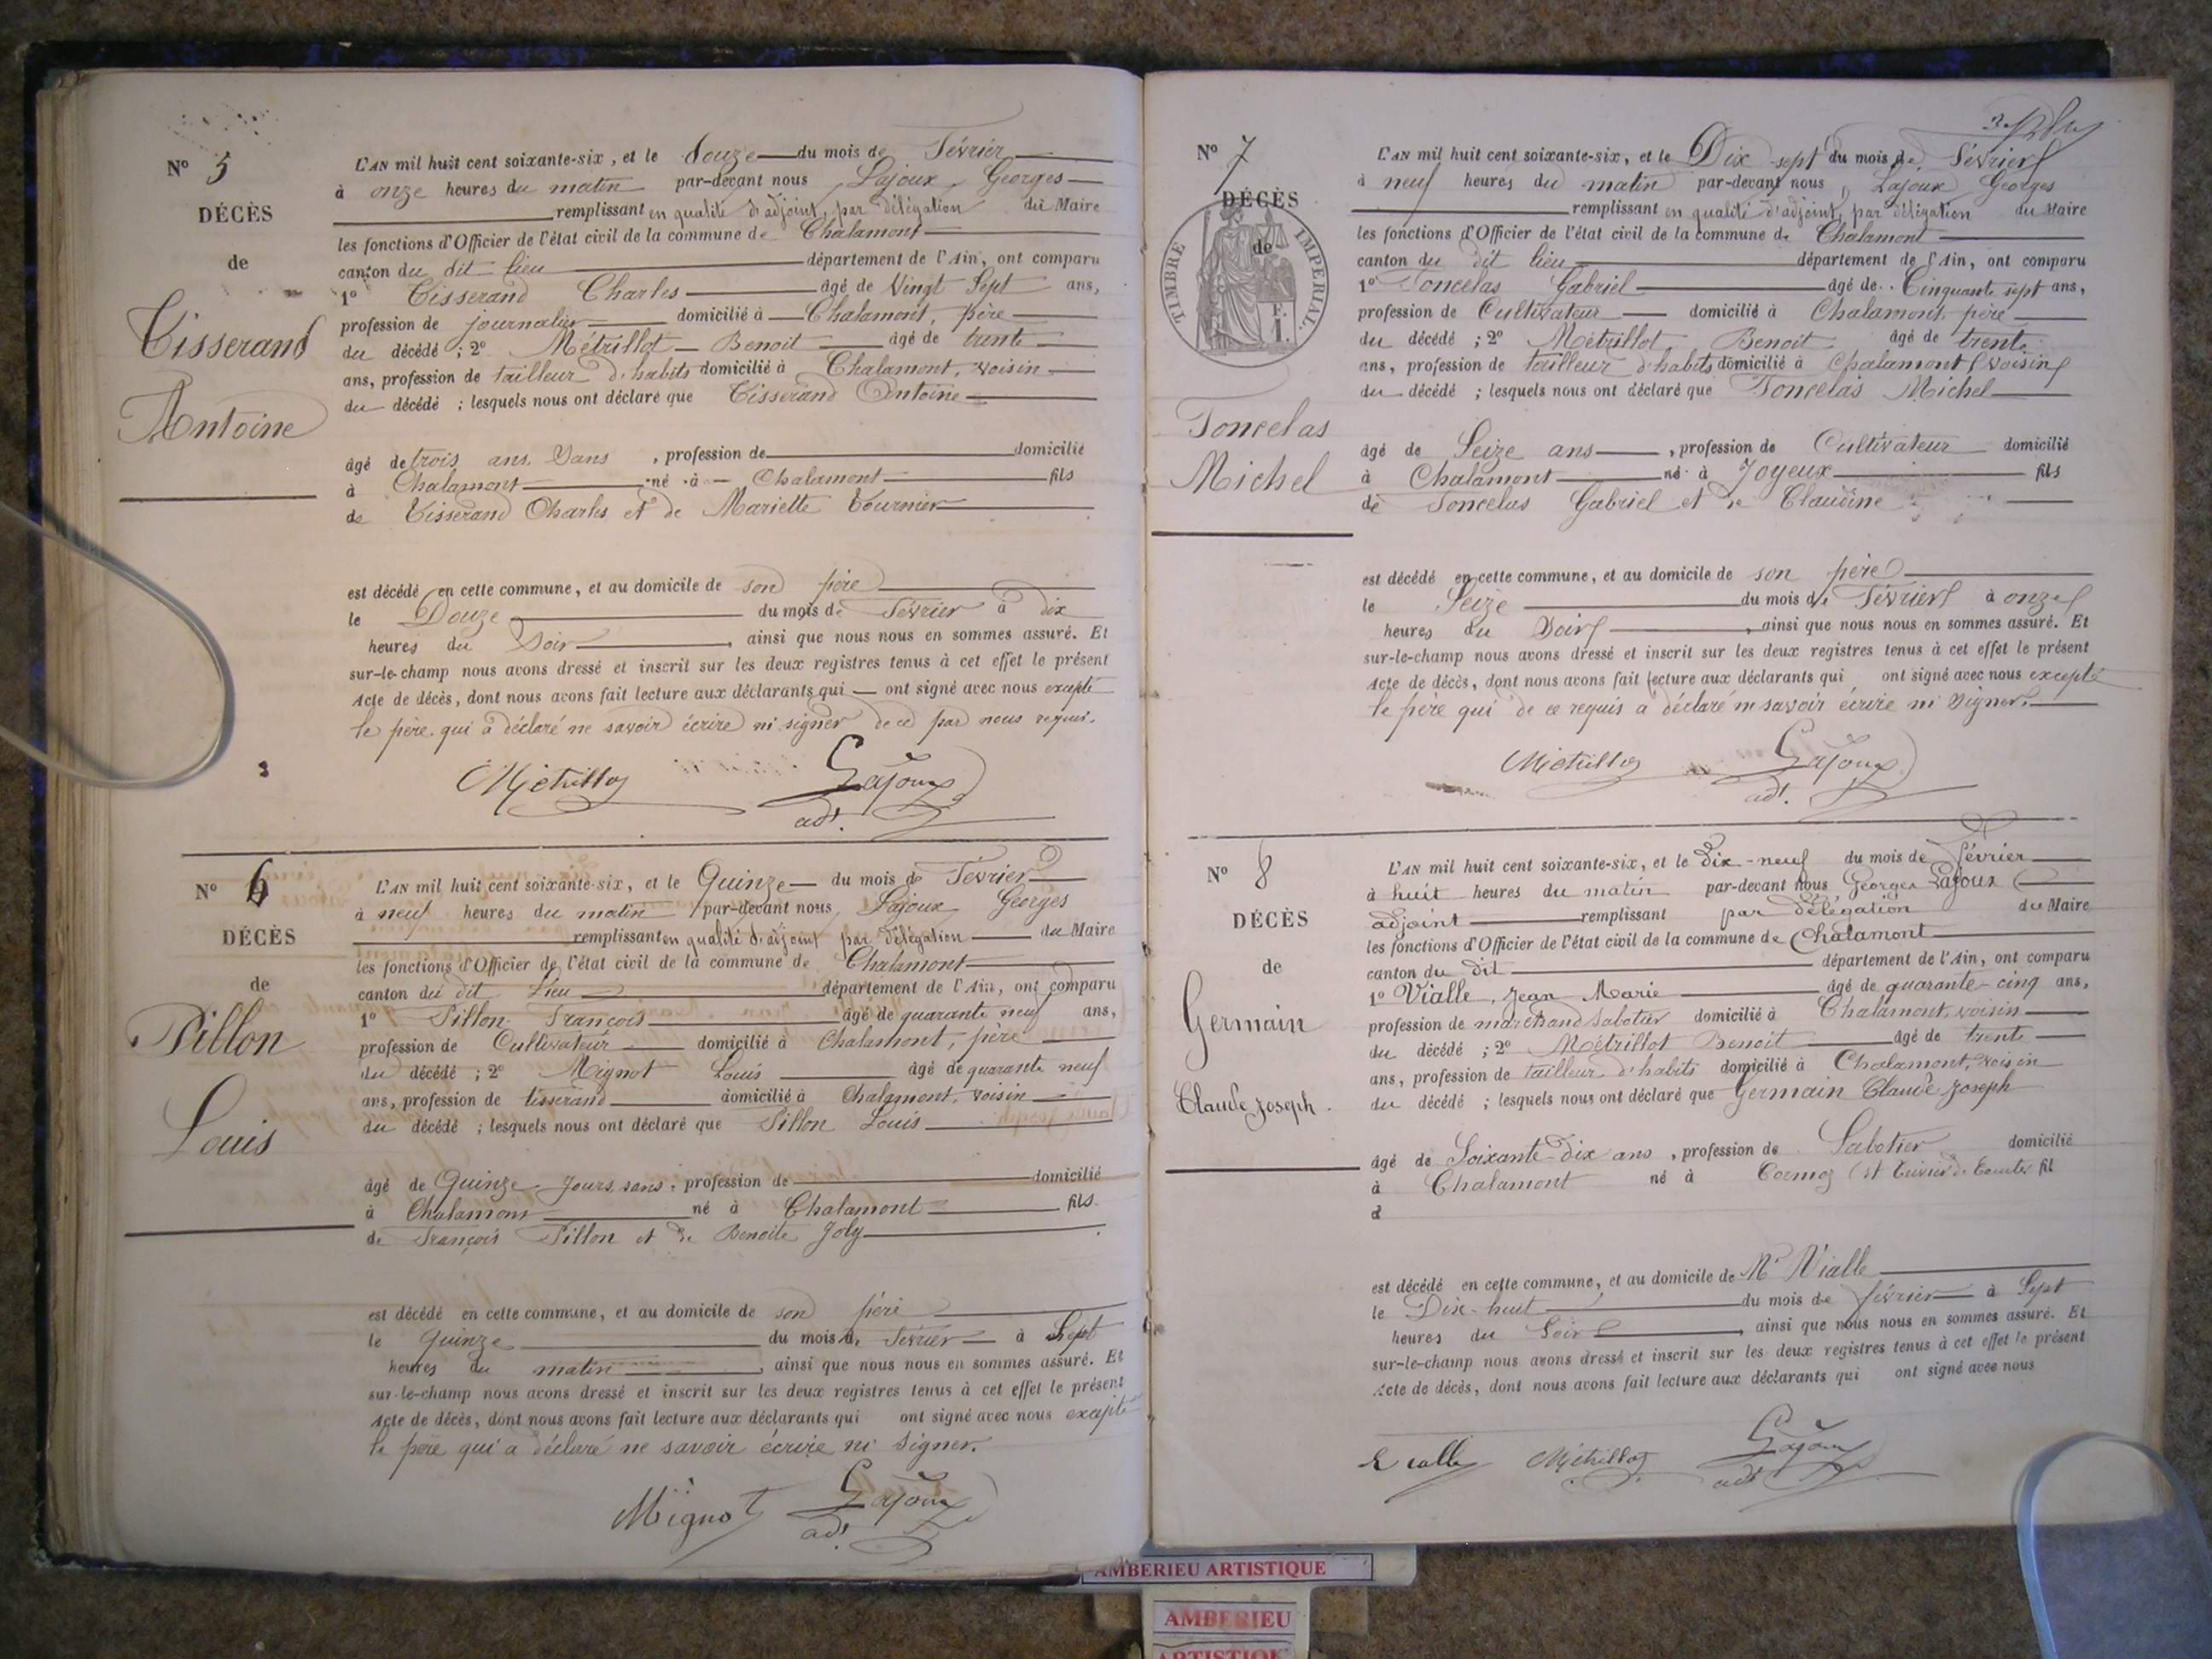 N° 5
DÉCÈS
de
Tisserand
Antoine
L'AN mil huit cent soixante-six, et le douze du mois de Février
à onze heures du matin par-devant nous, Lajoux, Georges
remplissant en qualité d'adjoint, par délégation du Maire
les fonctions d'Officier de l'état civil de la commune de Chalamont
canton du dit lieu département de l'Ain, ont comparu
1° Tisserand Charles âgé de Vingt Sept ans,
profession de journalier domicilié à Chalamont, père
du décédé ; 2° Métrillot Benoit âgé de trente
ans, profession de tailleur d'habits domicilié à Chalamont, voisin
du décédé ; lesquels nous ont déclaré que Tisserand Antoine
âgé de trois ans, Sans , profession de domicilié
à Chalamont né à Chalamont fils
de Tisserand Charles et de Mariette Tournier
est décédé en cette commune, et au domicile de son père
le Douze du mois de Février à dix
heures du Soir , ainsi que nous nous en sommes assuré. Et
sur-le-champ nous avons dressé et inscrit sur les deux registres tenus à cet effet le présent
Acte de décès, dont nous avons fait lecture aux déclarants qui ont signé avec nous excepté
le père qui a déclaré ne savoir écrire ni signer de ce par nous requis.
Métrillot Lajoux
adt.
N° 6
DÉCÈS
de
Pillon
Louis
L'AN mil huit cent soixante-six, et le Quinze du mois de Février
à neuf heures du matin par-devant nous, Lajoux Georges
remplissant en qualité d'adjoint par délégation du Maire
les fonctions d'Officier de l'état civil de la commune de Chalamont
canton du dit Lieu département de l'Ain, ont comparu
1° Pillon François âgé de quarante neuf ans,
profession de Cultivateur domicilié à Chalamont, père
du décédé ; 2° Mignot Louis âgé de quarante neuf
ans, profession de tisserand domicilié à Chalamont, voisin
du décédé ; lesquels nous ont déclaré que Pillon Louis
âgé de Quinze Jours, sans , profession de domicilié
à Chalamont né à Chalamont fils
de François Pillon et de Benoite Joly
est décédé en cette commune, et au domicile de son père
le quinze du mois de Février à Sept
heures du matin , ainsi que nous nous en sommes assuré. Et
sur-le-champ nous avons dressé et inscrit sur les deux registres tenus à cet effet le présent
Acte de décès, dont nous avons fait lecture aux déclarants qui ont signé avec nous excepté
le père qui a déclaré ne savoir écrire ni signer.
Mignot Lajoux
adt.
N° 7
DÉCÈS
de
TIMBRE IMPERIAL.
F.
1.
Toncelas
Michel
L'AN mil huit cent soixante-six, et le Dix sept du mois de Février
à neuf heures du matin par-devant nous, Lajoux Georges
remplissant en qualité d'adjoint, par délégation du Maire
les fonctions d'Officier de l'état civil de la commune de Chalamont
canton du dit lieu département de l'Ain, ont comparu
1° Toncelas Gabriel âgé de Cinquante sept ans,
profession de Cultivateur domicilié à Chalamont, père
du décédé ; 2° Métrillot Benoit âgé de trente
ans, profession de tailleur d'habits domicilié à Chalamont, voisin
du décédé ; lesquels nous ont déclaré que Toncelas Michel
âgé de Seize ans , profession de Cultivateur domicilié
à Chalamont né à Joyeux fils
de Toncelas Gabriel et de Claudine
est décédé en cette commune, et au domicile de son père
le Seize du mois de Février à onze
heures du Soir , ainsi que nous nous en sommes assuré. Et
sur-le-champ nous avons dressé et inscrit sur les deux registres tenus à cet effet le présent
Acte de décès, dont nous avons fait lecture aux déclarants qui ont signé avec nous excepté
le père qui de ce requis a déclaré ne savoir écrire ni signer.
Métrillot Lajoux
adt.
N° 8
DÉCÈS
de
Germain
Claude Joseph.
L'AN mil huit cent soixante-six, et le Dix-neuf du mois de février
à huit heures du matin par-devant nous Georges Lajoux
adjoint remplissant par délégation du Maire
les fonctions d'Officier de l'état civil de la commune de Chalamont
canton du dit département de l'Ain, ont comparu
1° Vialle, Jean Marie âgé de quarante-cinq ans,
profession de marchand sabotier domicilié à Chalamont, voisin
du décédé ; 2° Métrillot Benoit âgé de trente
ans, profession de tailleur d'habits domicilié à Chalamont, voisin
du décédé ; lesquels nous ont déclaré que Germain Claude Joseph
âgé de Soixante-Dix ans , profession de Sabotier domicilié
à Chalamont né à Cormoz fil
d
est décédé en cette commune, et au domicile de Mr Vialle
le Dix-huit du mois de février à Sept
heures du Soir , ainsi que nous nous en sommes assuré. Et
sur-le-champ nous avons dressé et inscrit sur les deux registres tenus à cet effet le présent
Acte de décès, dont nous avons fait lecture aux déclarants qui ont signé avec nous
Vialle Métrillot Lajoux
adt
AMBERIEU ARTISTIQUE
AMBERIEU
ARTISTIQUE